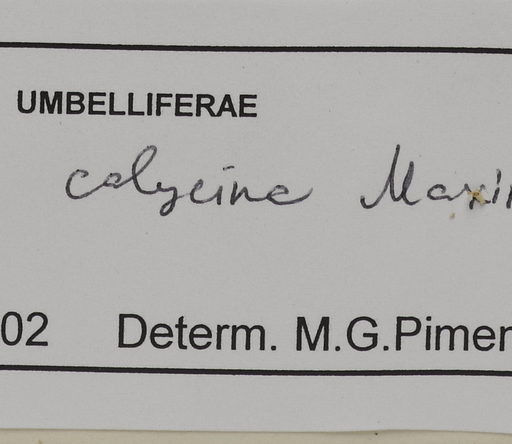 UMBELLIFERAE
calycina Maxim
02 Determ. M.G.Pimen